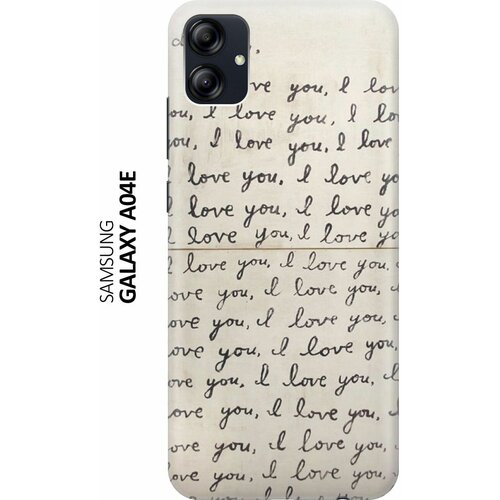 SAMSUNG
GALAXY A04E
ve you, I lov
ou, I love you, I lo
you, I love you, I love
love you, I love yo
love you, I love yo
I love you, I love yo
I love you, I love you,
ove you, I love you,
ove you, I love you,
ove you, I love you,
ove you, I love you, I
love you, I love you, I
ove you, I love you,
ove you, I love you,